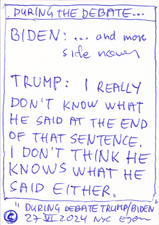 DURING THE DEBATE...
BIDEN: ... and more
side noises
TRUMP: I REALLY
DON'T KNOW WHAT
HE SAID AT THE END
OF THAT SENTENCE.
I DON'T THINK HE
KNOWS WHAT HE
SAID EITHER.
"DURING DEBATE TRUMP/BIDEN"
27 VI 2024 NYC